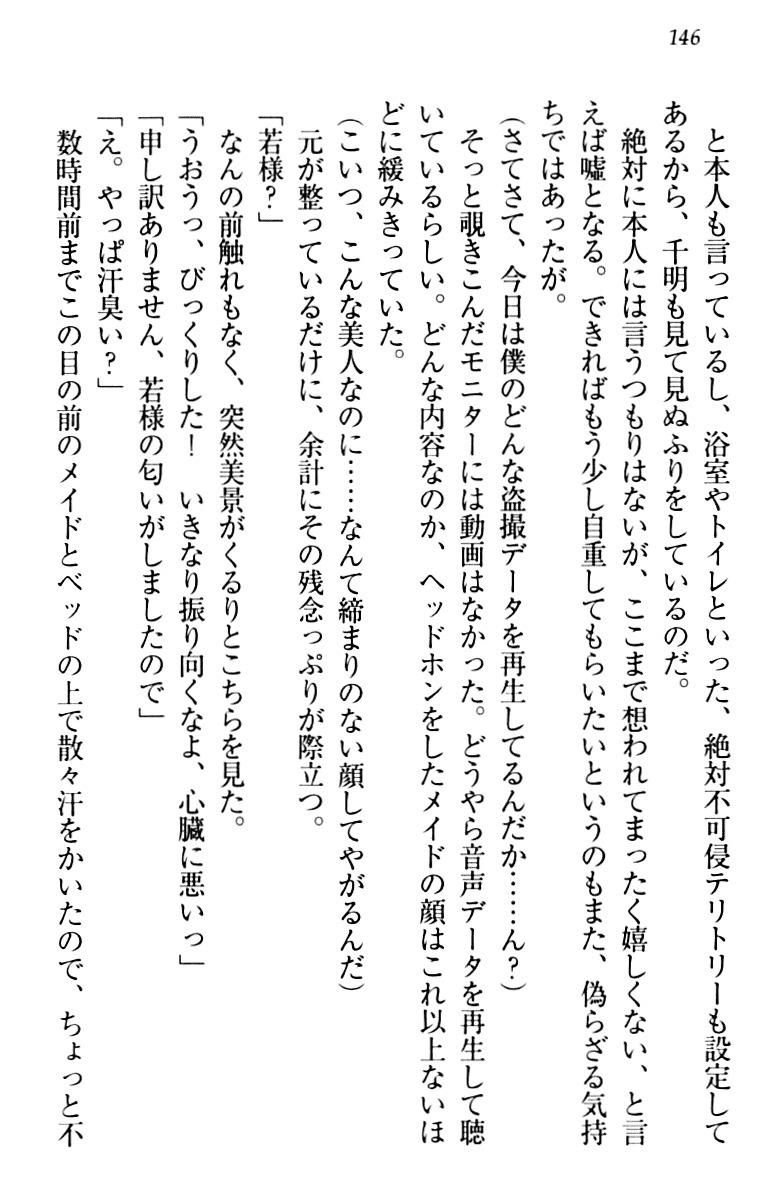 146
と本人も言っているし、浴室やトイレといった、絶対不可侵テリトリーも設定して
あるから、千明も見て見ぬふりをしているのだ。
絶対に本人には言うつもりはないが、ここまで想われてまったく嬉しくない、と言
えば嘘となる。できればもう少し自重してもらいたいというのもまた、偽らざる気持
ちではあったが。
(さてさて、今日は僕のどんな盗撮データを再生してるんだか……ん?)
そっと覗きこんだモニターには動画はなかった。どうやら音声データを再生して聴
いているらしい。どんな内容なのか、ヘッドホンをしたメイドの顔はこれ以上ないほ
どに緩みきっていた。
(こいつ、こんな美人なのに……なんて締まりのない顔してやがるんだ)
元が整っているだけに、余計にその残念っぷりが際立つ。
「若様?」
なんの前触れもなく、突然美景がくるりとこちらを見た。
「うおうっ、びっくりした! いきなり振り向くなよ、心臓に悪いっ」
「申し訳ありません、若様の匂いがしましたので」
「え。やっぱ汗臭い?」
数時間前までこの目の前のメイドとベッドの上で散々汗をかいたので、ちょっと不